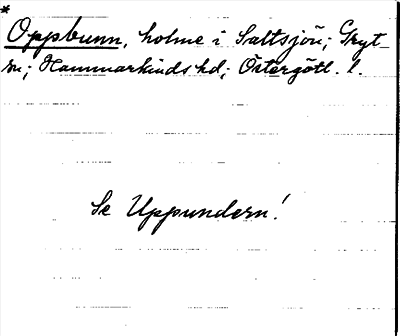 *
Oppbunn, holme i Saltsjön; Gryt-
sn; Hammarkinds hd; Östergötl. l.
Se Uppundern!